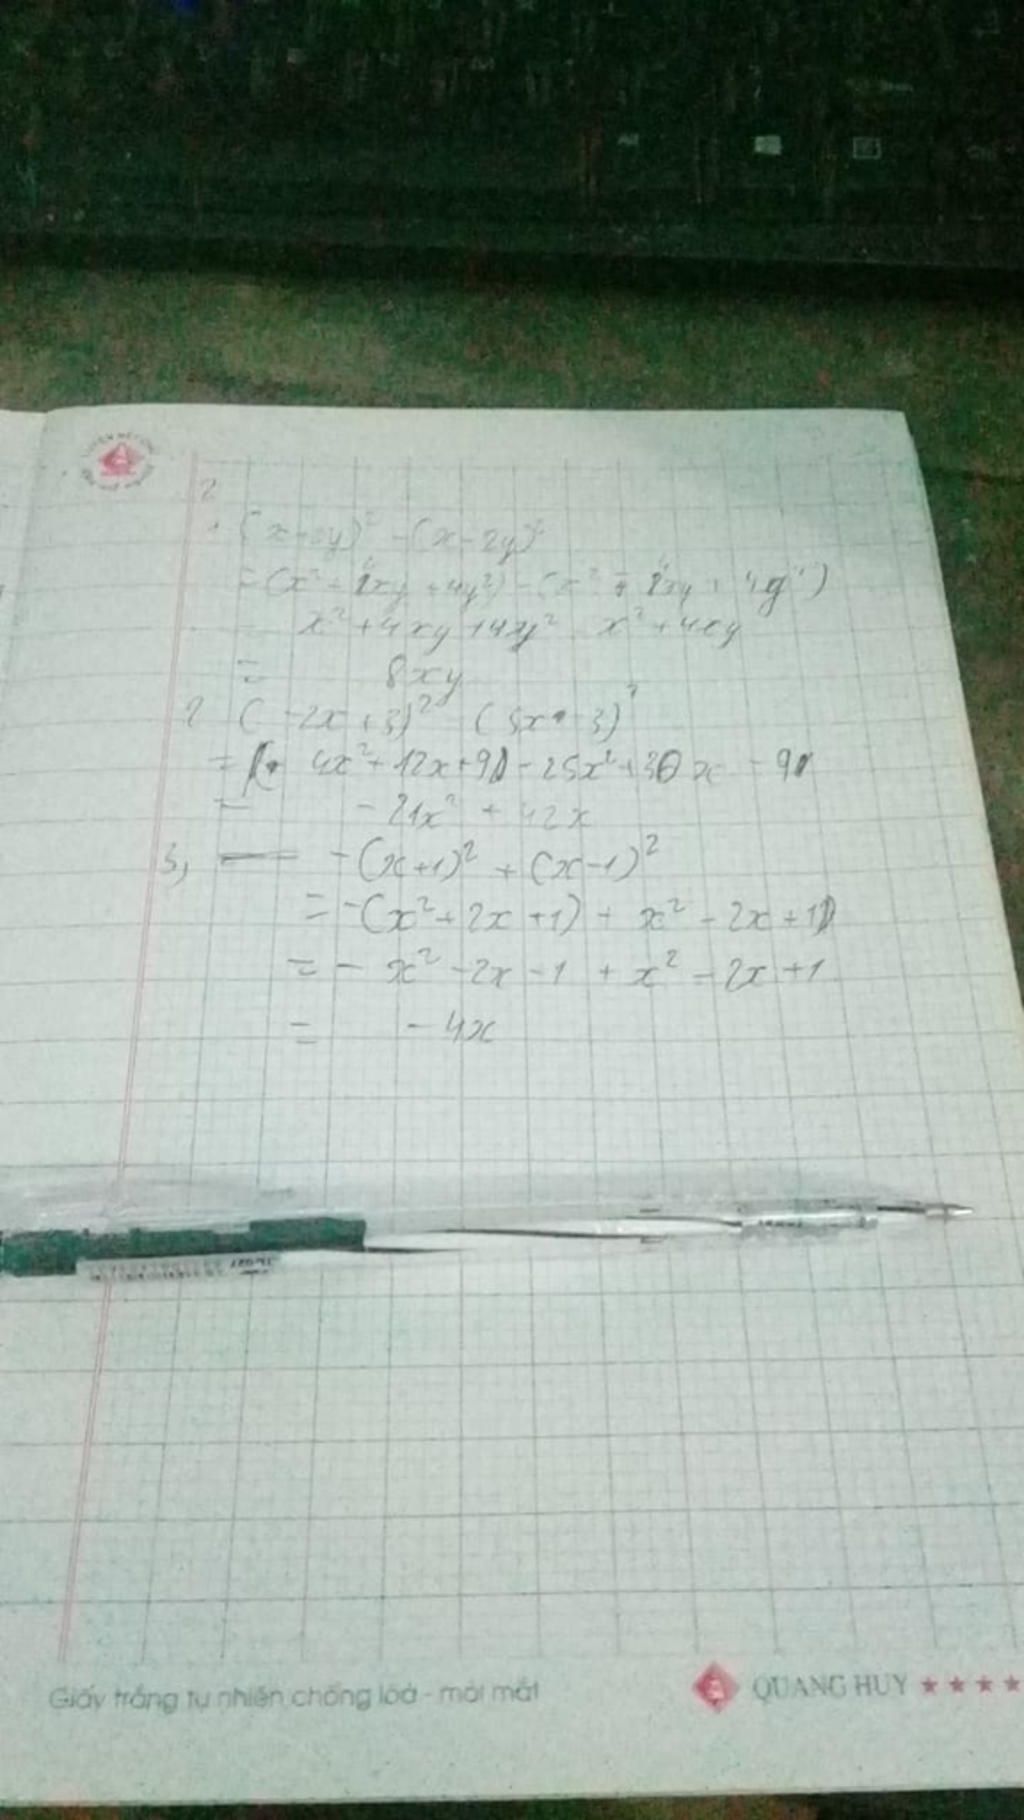 2
(x+2y)² - (x-2y)²
= (x² + 4xy + 4y²) - (x² - 4xy + 4y²)
x² + 4xy + 4y² x² + 4xy
= 8xy
2 (-2x+3)² (5x-3)²
= 4x² + 12x + 9 - 25x² + 30x - 9
= -21x² + 42x
3, -(x+1)² + (x-1)²
= -(x² + 2x + 1) + x² - 2x + 1
= - x² - 2x - 1 + x² - 2x + 1
= - 4x
Giấy trắng tự nhiên chống lóa - mỏi mắt
QUANG HUY ★★★★